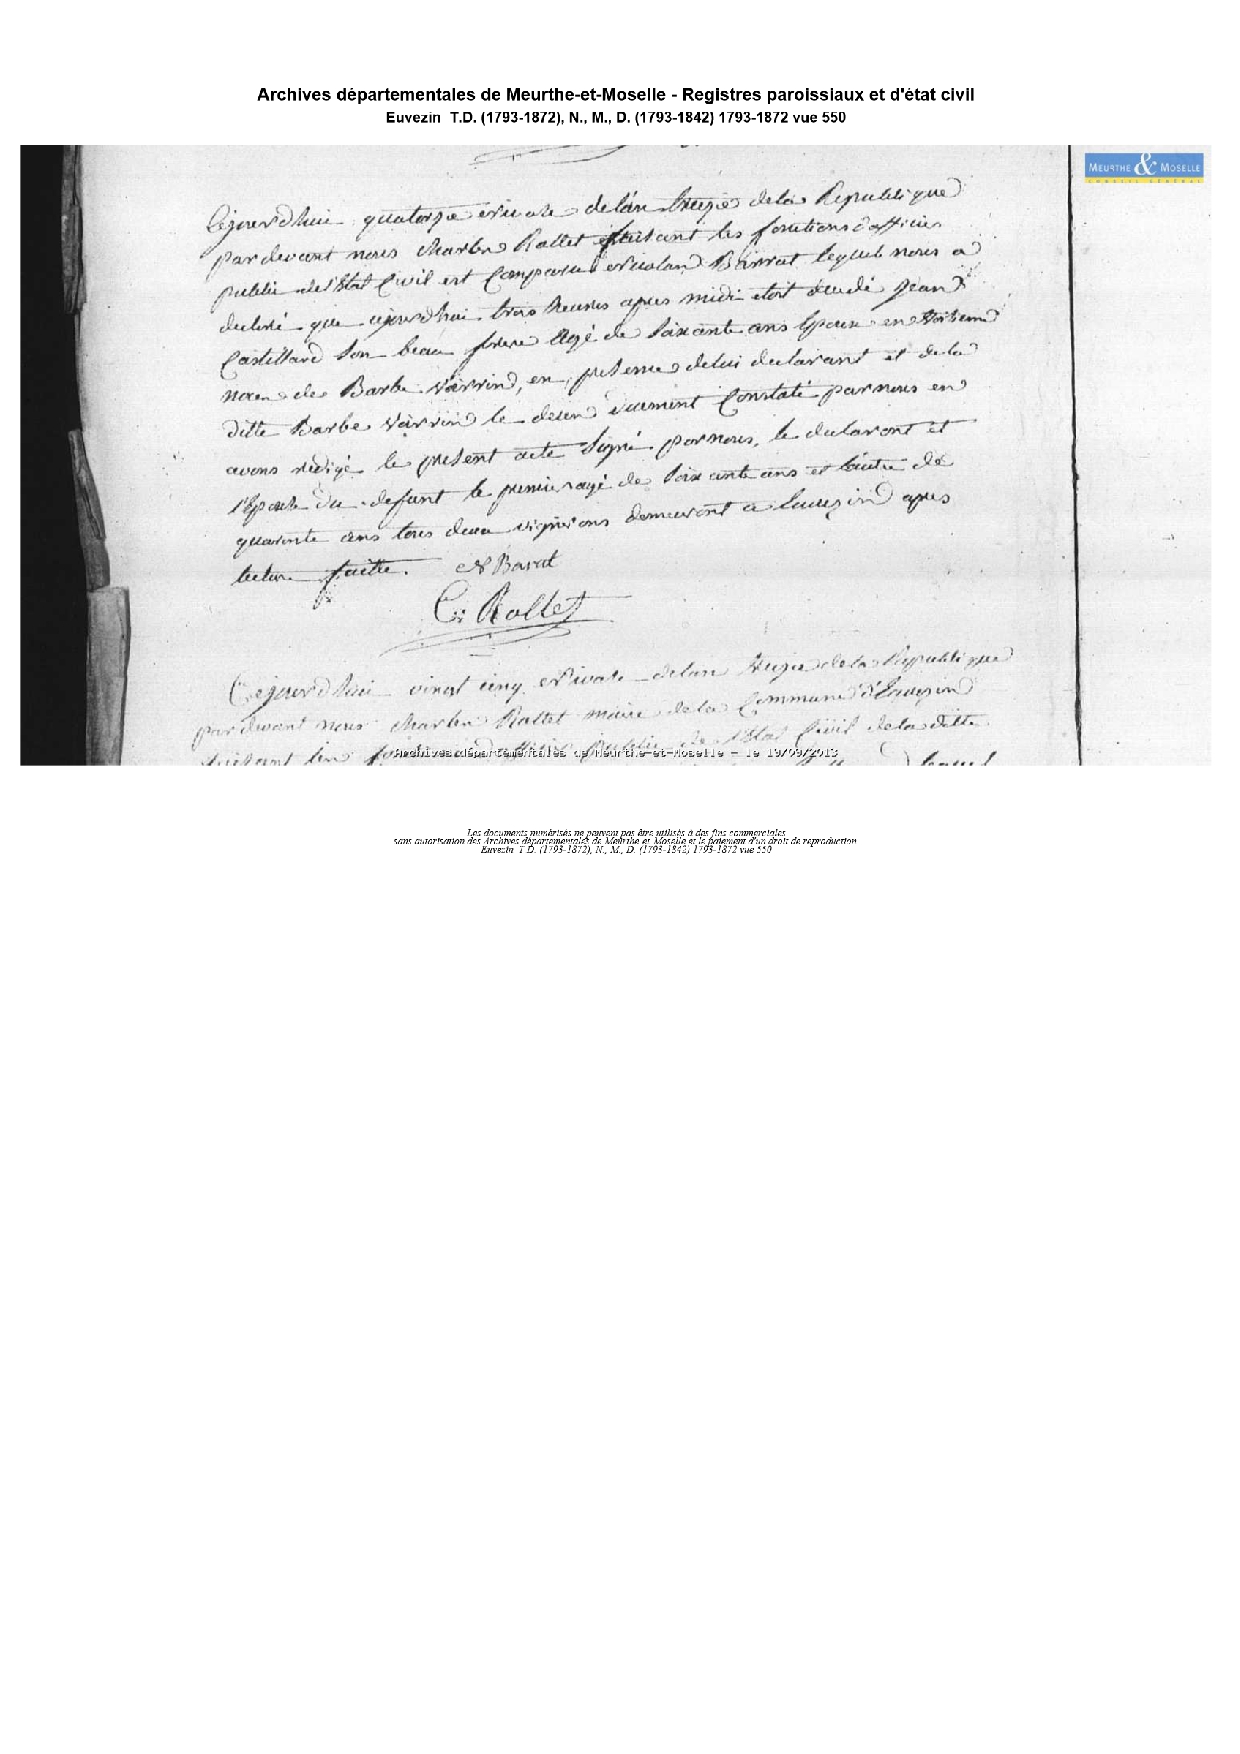 Archives départementales de Meurthe-et-Moselle - Registres paroissiaux et d'état civil
Euvezin T.D. (1793-1872), N., M., D. (1793-1842) 1793-1872 vue 550
MEURTHE & MOSELLE
CONSEIL GÉNÉRAL
Cejourdhui quatorze nivose de lan treize de la Republique
pardevant nous charles Rollet faisant les fonctions d'officier
public de l'Etat Civil est Comparu nicolas Barrat lequel nous a
declaré que cejourdhui trois heures apres midi etoit decedé jean
Castillard Son beau frere agé de Soixante ans Epoux en
noce de Barbe Varrin, en presence de lui declarant et de la
ditte Barbe Varrin le deces vraiment Constaté par nous en
avons rédigé le present acte Signé par nous, le declarant et
l'Epouse du defunt le premier agé de Soixante ans et lautre de
quarante ans tous deux vignerons demeurant a Euvezin apres
lecture faitte. N Barat
C. Rollet
Cejourdhui vingt cinq nivose de lan treize de la Republique
pardevant nous charles Rollet maire de la Commune d'Euvezin
faisant les officier public de l'Etat Civil de la ditte
Archives départementales de Meurthe-et-Moselle - le 19/09/2013
Les documents numérisés ne peuvent pas être utilisés à des fins commerciales
sans autorisation des Archives départementales de Meurthe et Moselle et le paiement d'un droit de reproduction
Euvezin T.D. (1793-1872), N., M., D. (1793-1842) 1793-1872 vue 550